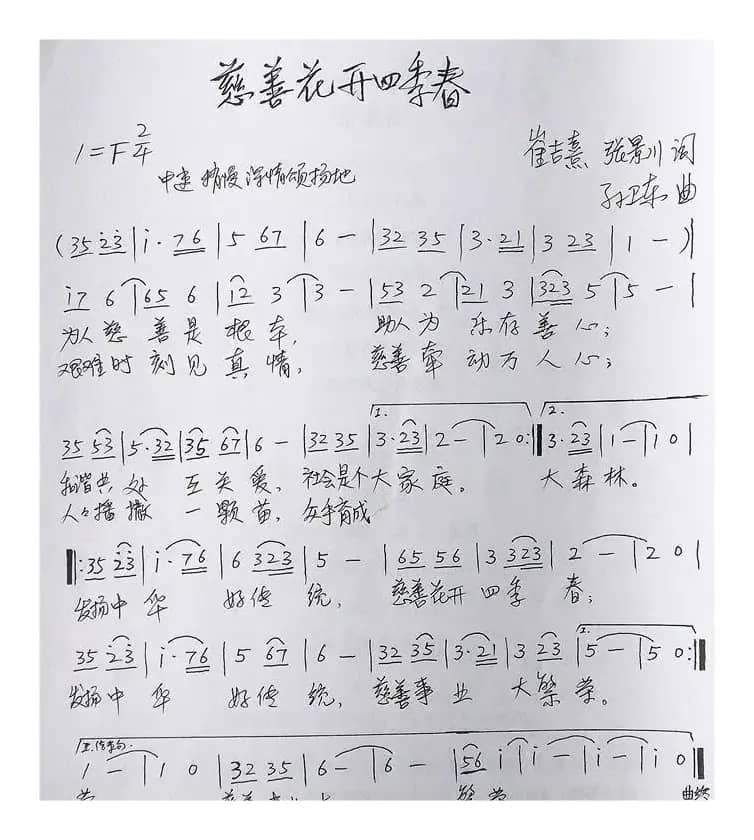 慈善花开四季春
1=F 2/4
崔吉熹 张景川 词
中速 稍慢 深情颂扬地
孙卫东 曲
(35 2̇3̇ | i· 76 | 5 67 | 6 – | 32 35 | 3·21 | 3 23 | 1 – )|
i7 6 | 65 6 | i2 3 | 3 – | 53 2 | 21 3 | 323 5 | 5 – |
为人慈 善是根本, 助人为 乐存善心;
艰难时刻见真情, 慈善牵动万人心;
1. 2.
35 53 | 5·32 | 35 67 | 6 – | 32 35 | 3·23 | 2 – | 2 0 :‖ 3·23 | 1 – | 1 0 |
和谐共处 互关爱, 社会是个大家庭。 大森林。
人人播撒 一颗苗, 众手育成
‖: 35 2̇3̇ | i· 76 | 6 323 | 5 – | 65 56 | 3 323 | 2 – | 2 0 |
发扬中华 好传统, 慈善花开四季 春;
1.
35 2̇3̇ | i· 76 | 5 67 | 6 – | 32 35 | 3·21 | 3 23 | 5 – | 5 0 :‖
发扬中华 好传统, 慈善事业 大繁荣。
1 – | 1 0 | 32 35 | 6 – | 6 – | 56 i | i – | i – | i 0 ‖
曲终